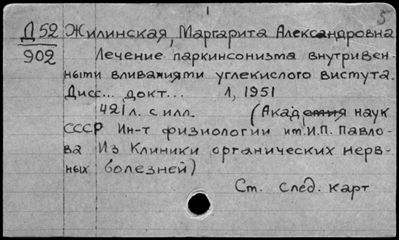 5
Д52 Жилинская, Маргарита Александровна
902 Лечение паркинсонизма внутривен-
ными вливаниями углекислого висмута.
Дисс... докт... Л, 1951
421л. с илл. (Академия наук
СССР Ин-т физиологии им. И.П. Павло-
ва Из Клиники органических нерв-
ных болезней)
Ст. след. карт